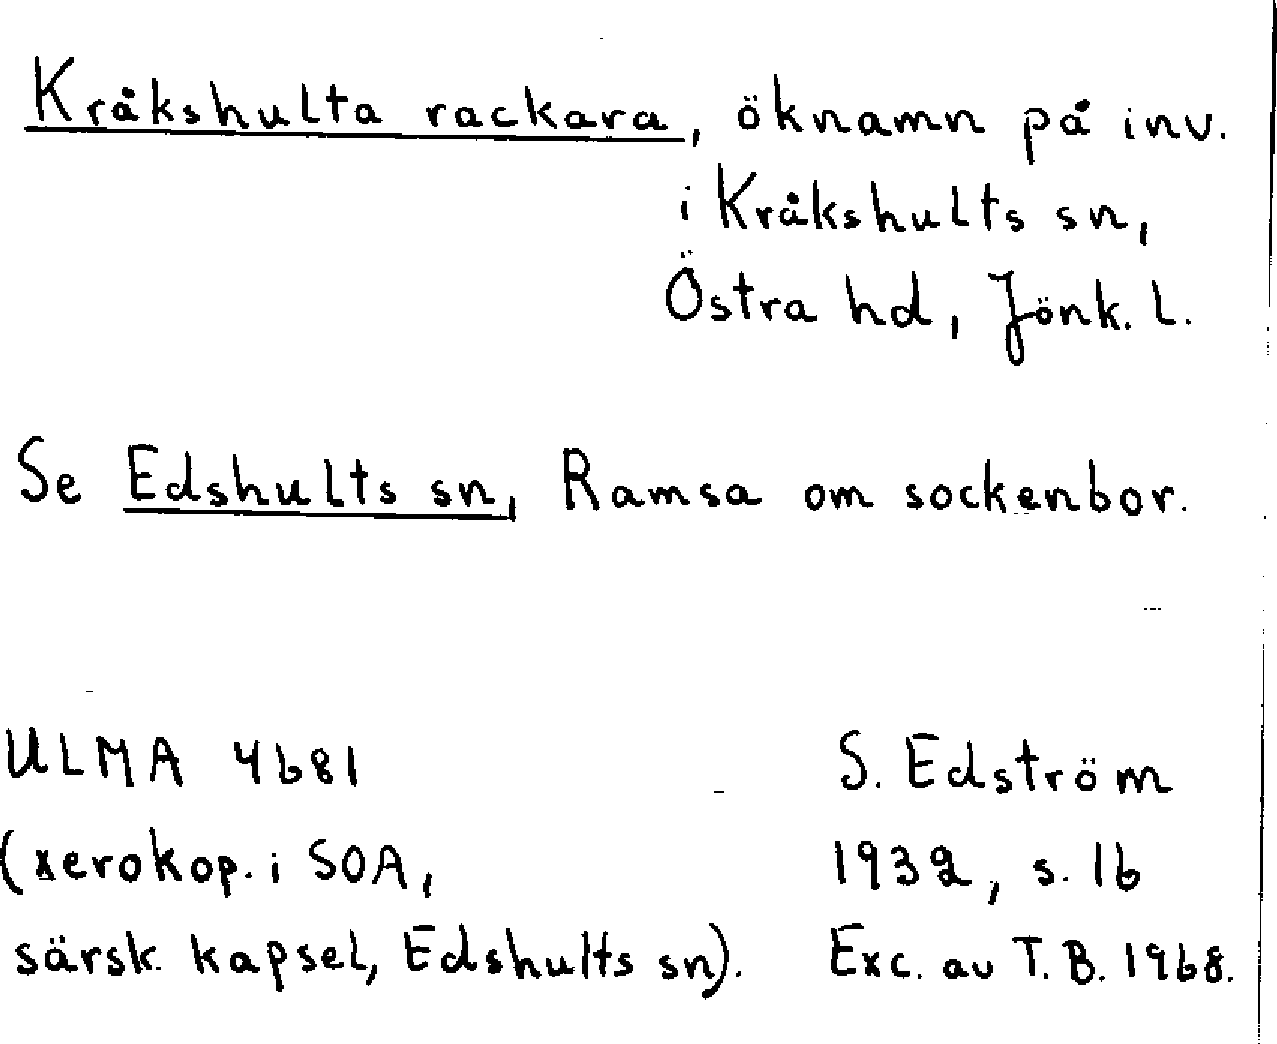 Kråkshulta rackara, öknamn på inv.
i Kråkshults sn,
Östra hd, Jönk. l.
Se Edshults sn, Ramsa om sockenbor.
ULMA 4681 S. Edström
(xerokop. i SOA, 1932, s. 16
särsk. kapsel, Edshults sn). Exc. av T. B. 1968.